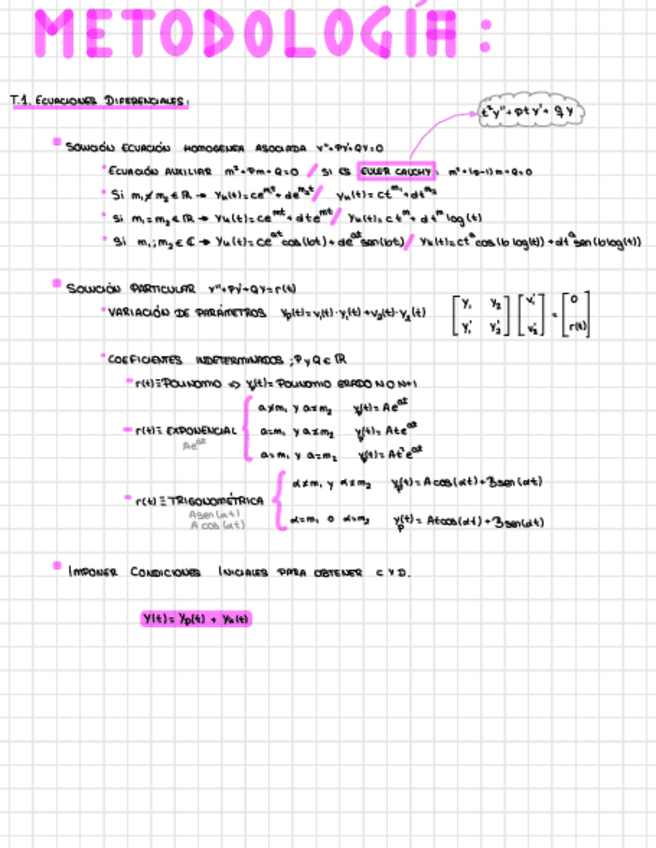 METODOLOGÍA:
T.1. ECUACIONES DIFERENCIALES:
t²y''+pty'+qy
SOLUCIÓN ECUACIÓN HOMOGENEA ASOCIADA y''+Py'+Qy=0
ECUACIÓN AUXILIAR m²+Pm+Q=0 / SI ES EULER CAUCHY: m²+(p-1)m+Q=0
Si m₁≠m₂∈ℝ → yₕ(t)=ce^m₁t+de^m₂t / yₕ(t)=ct^m₁+dt^m₂
Si m₁=m₂∈ℝ → yₕ(t)=ce^mt+dte^mt / yₕ(t)=ct^m+dt^m log(t)
Si m₁;m₂∈ℂ → yₕ(t)=ce^at cos(bt)+de^at sen(bt) / yₕ(t)=ct^a cos(b log(t))+dt^a sen(b log(t))
SOLUCIÓN PARTICULAR y''+Py'+Qy=r(t)
VARIACIÓN DE PARÁMETROS yₚ(t)=v₁(t)·y₁(t)+v₂(t)·y₂(t) [y₁ y₂; y₁' y₂'] [v₁'; v₂'] = [0; r(t)]
COEFICIENTES INDETERMINADOS ; P y Q ∈ ℝ
r(t)≡POLINOMIO ⇔ y(t)=POLINOMIO GRADO N O N+1
a≠m₁ y a≠m₂ yₚ(t)=Ae^at
r(t)≡EXPONENCIAL a=m₁ y a≠m₂ yₚ(t)=Ate^at
Ae^at
a=m₁ y a=m₂ yₚ(t)=At²e^at
α≠m₁ y α≠m₂ yₚ(t)=Acos(αt)+Bsen(αt)
r(t)≡TRIGONOMÉTRICA
Asen(αt)
Acos(αt)
α=m₁ o α=m₂ yₚ(t)=Atcos(αt)+Bsen(αt)
IMPONER CONDICIONES INICIALES PARA OBTENER C Y D.
y(t)=yₚ(t)+yₕ(t)